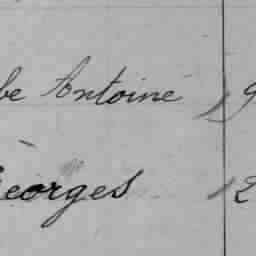 be Antoine 19
Georges 12